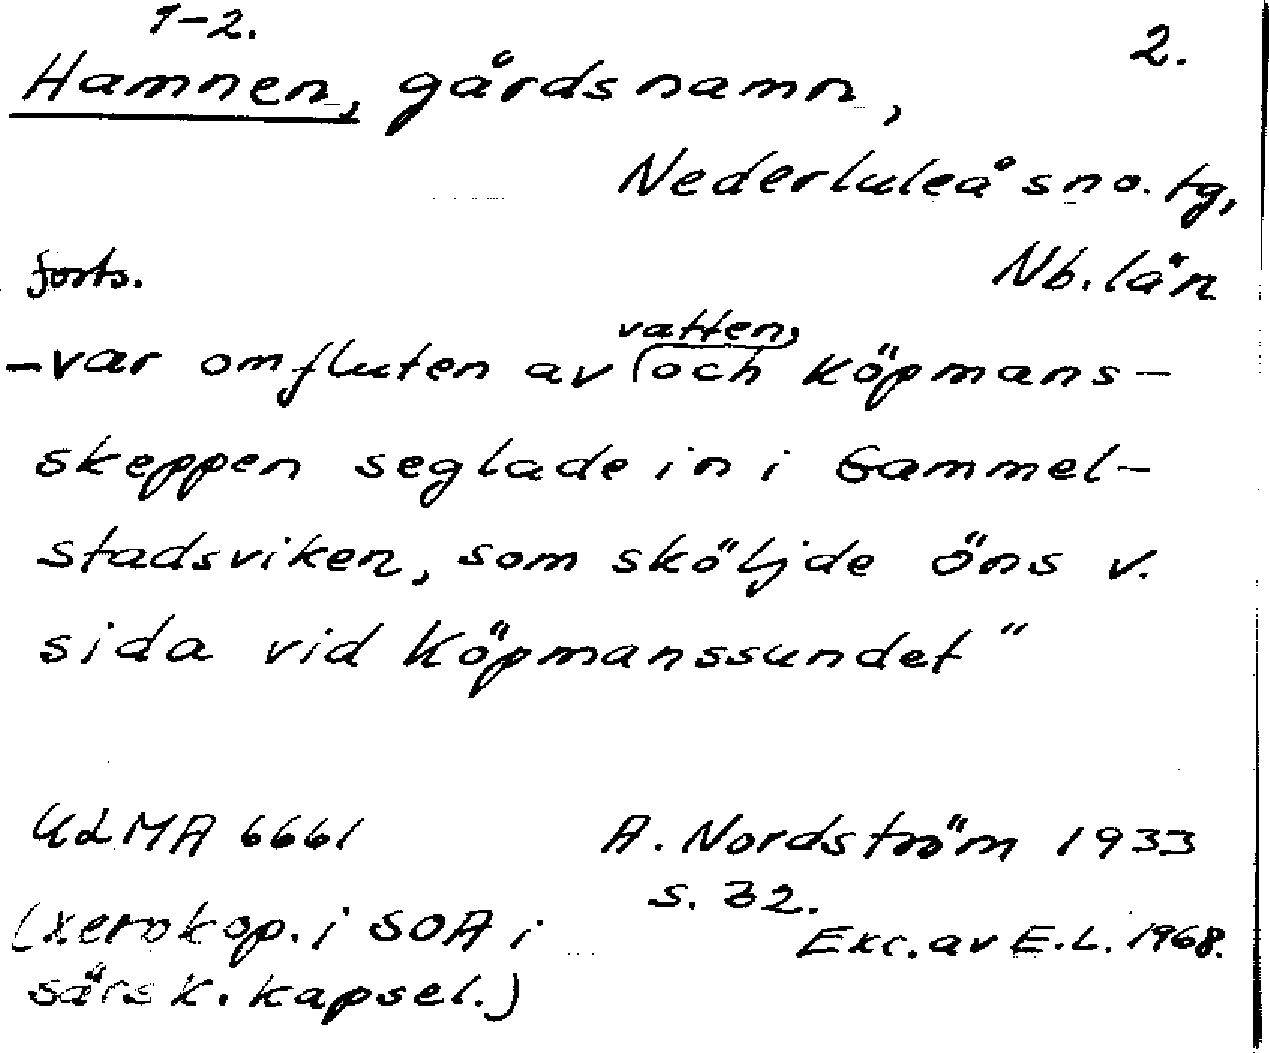 1-2.
2.
Hamnen, gårdsnamn,
Nederluleå sno. tg,
Nb. län
forts.
vatten,
-var omfluten av och köpmans-
skeppen seglade in i Gammel-
stadsviken, som sköljde öns v.
sida vid Köpmanssundet"
ULMA 6661
A. Nordström 1933
s. 32.
(xerokop. i SOA i
Exc. av E.L. 1968.
särsk. kapsel.)